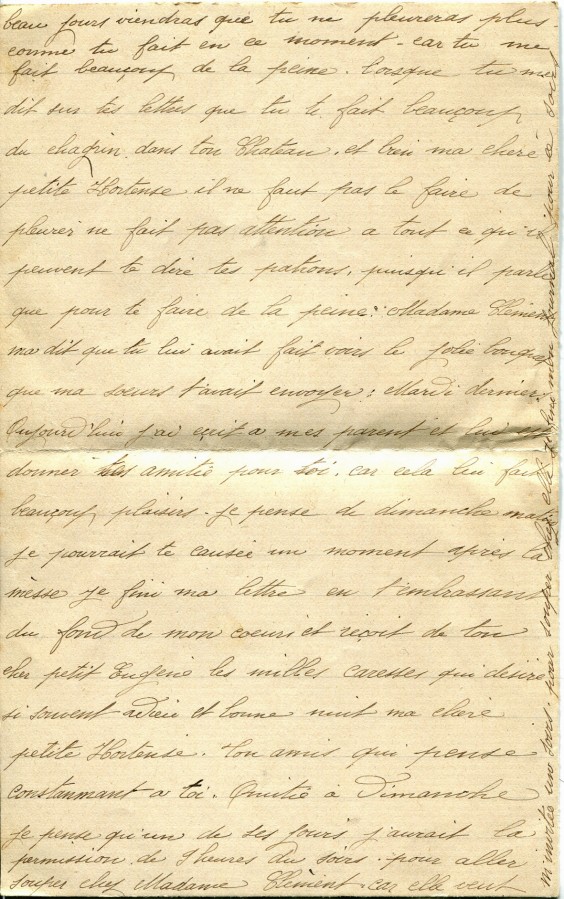 beau jours viendras que tu ne pleureras plus
comme tu fait en ce moment. car tu me
fait beaucoup de la peine. lorsque tu me
dit sur tes lettres que tu te fait beaucoup
du chagrin dans ton Chateau, et bien ma cheré
petite Hortense il ne faut pas le faire de
pleurer ne fait pas attention a tout ce qu'il
peuvent te dire tes patrons, puisqu'il parle
que pour te faire de la peine. Madame Clément
ma dit que tu lui avait fait voirs le jolie bouquet
que ma soeurs t'avait envoyer; Mardi dernier
Aujourd'hui j'ai ecrit a mes parent et lui en
donner tes amitié pour toi. car cela lui fait
beaucoup plaisirs. Je pense de dimanche matin
je pourrait te causée un moment après la
mèsse je fini ma lettre en t'embrassant
du fond de mon coeur et reçoit de ton
cher petit Eugene les milles caresses qui désire
si souvent adieu et bonne nuit ma chere
petite Hortense. Ton amis qui pense
constanmant a toi. Amitié à Dimanche
Je pense qu'un de ses jours j'aurait la
permission de 9 heures du soirs. pour aller
souper chez Madame Clément car elle veut
m'invité un soirs. pour souper chez elle